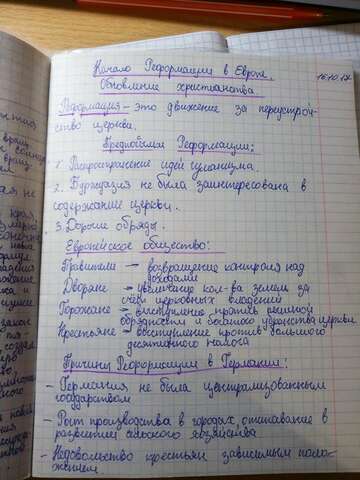 Начало Реформации в Европе.
16.10.17
Обновление христианства.
Реформация – это движение за переустрой-
ство церкви.
Предпосылки Реформации:
1. Распространение идей гуманизма.
2. Буржуазия не была заинтересована в
содержание церкви.
3. Дорогие обряды.
Европейское общество:
Правители → возвращение контроля над
доходами
Дворяне → увеличение кол-ва земли за
счёт церковных владений
Горожане → выступление против
обрядности и убранства церкви
Крестьяне → выступление против большого
десятинного налога
Причины Реформации в Германии:
- Германия не была централизованным
государством
- Рост производства в городах, отставание в
развитии сельского хозяйства
- Недовольство крестьян зависимым поло-
жением